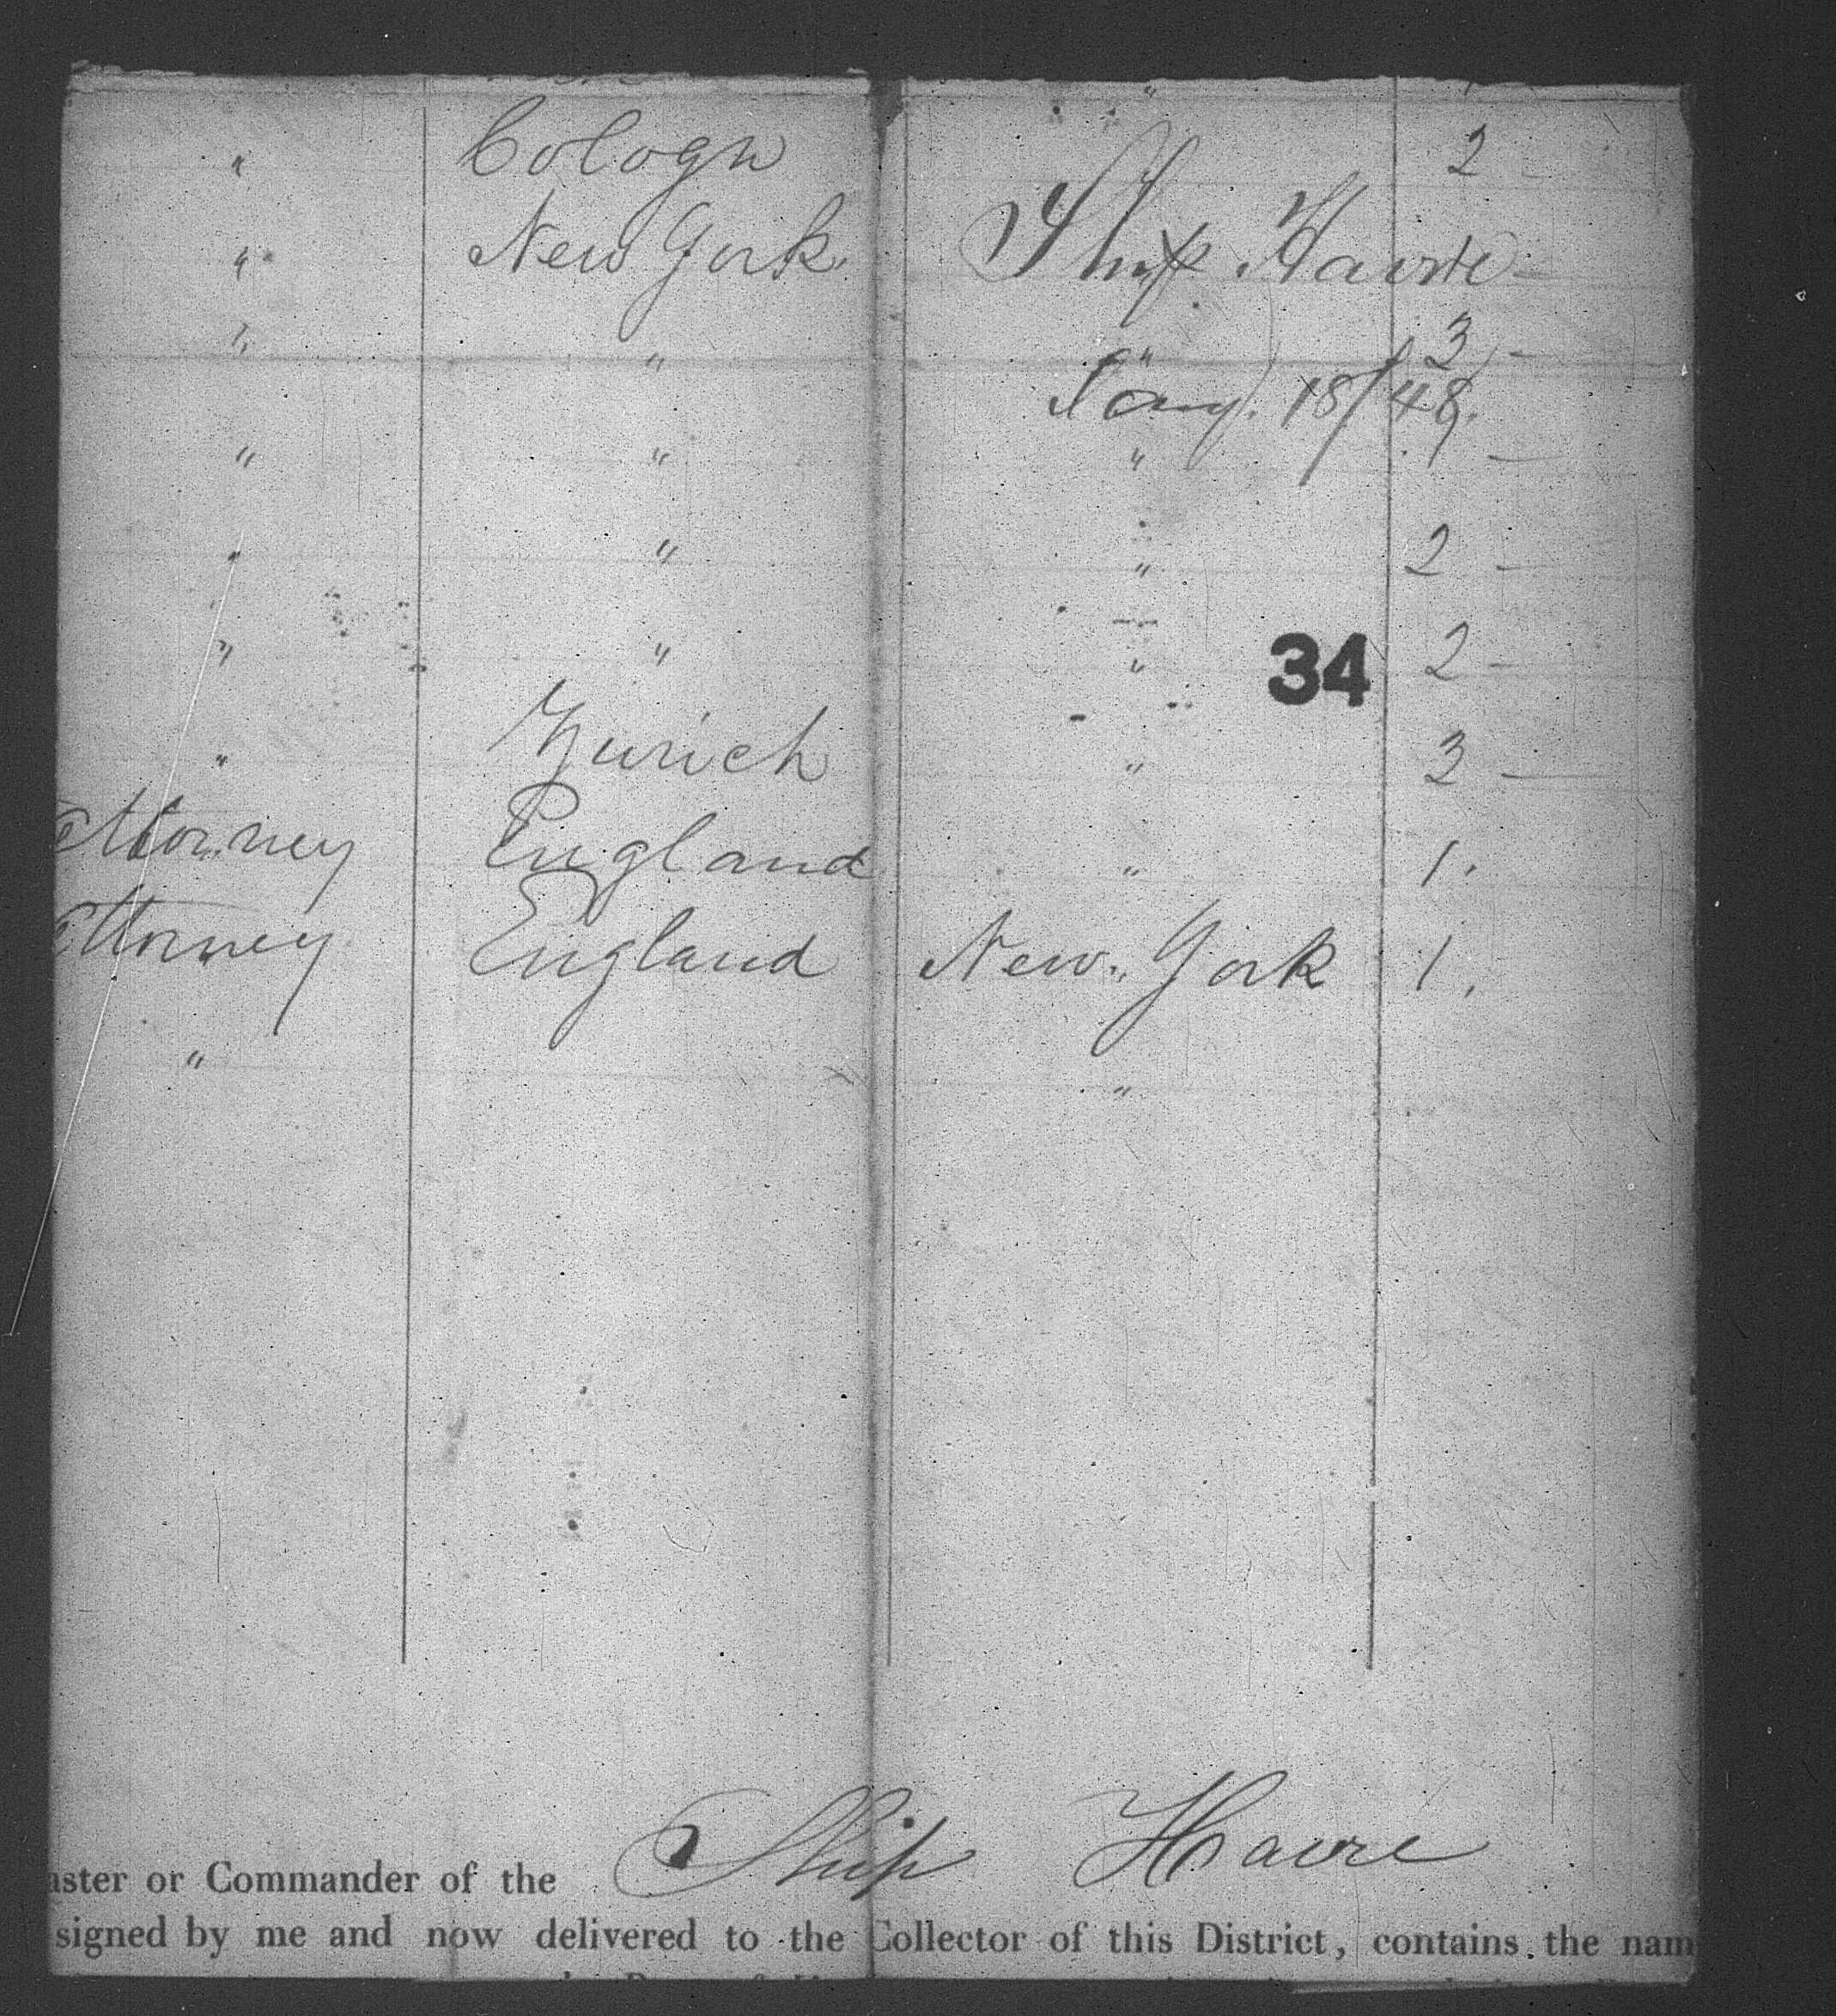 " Cologn 2 -
" New York. Ship Havre -
" " " 3 -
Jany. 18/48.
" " " 1 -
" " " 2 -
" " " 2 -
34
" Zurich " 3 -
Attorney England " 1.
Attorney England New York 1.
" "
Ship Havre
aster or Commander of the
signed by me and now delivered to the Collector of this District, contains the nam